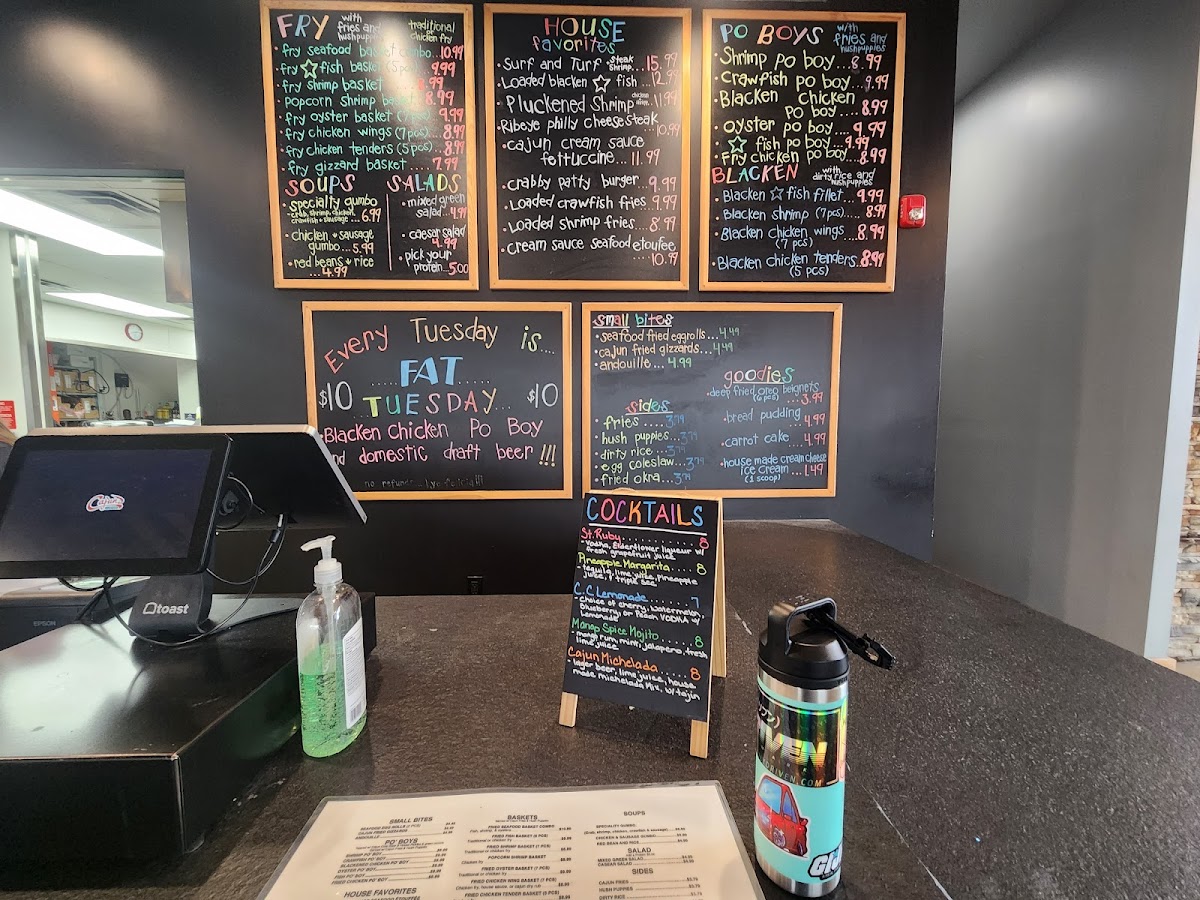 FRY with fries and hushpuppies traditional chicken fry
• fry seafood basket combo...10.99
• fry ☆ fish basket (5 pcs) 9.99
• fry shrimp basket 8.99
• popcorn shrimp basket 8.99
• fry oyster basket (7 pcs) 9.99
• fry chicken wings (7 pcs)...8.99
• fry chicken tenders (5 pcs) 8.99
• fry gizzard basket .... 7.99
SOUPS
• specialty gumbo
crab, shrimp, chicken,
crawfish + sausage ...6.99
• chicken + sausage
gumbo...5.99
• red beans + rice
...4.99
SALADS
• mixed green
salad...4.99
• caesar salad
4.99
• pick your
protein..5.00
HOUSE
favorites
• Surf and Turf steak shrimp...15.99
• Loaded blacken ☆ fish ...12.99
• Pluckened Shrimp ...11.99
• Ribeye philly cheesesteak
...10.99
• cajun cream sauce
fettuccine... 11.99
• crabby patty burger...9.99
• Loaded crawfish fries 9.99
• Loaded shrimp fries... 8.99
• cream sauce seafood etoufee
...10.99
PO BOYS with fries and hushpuppies
• Shrimp po boy...8.99
• Crawfish po boy...9.99
• Blacken Chicken
po boy....8.99
• oyster po boy...9.99
• ☆ fish po boy...9.99
• Fry chicken po boy...8.99
BLACKEN with dirty rice and hushpuppies
• Blacken ☆ fish fillet...9.99
• Blacken shrimp (7pcs)...8.99
• Blacken chicken wings ...8.99
(7 pcs)
• Blacken chicken tenders..8.99
(5 pcs)
Every Tuesday is....
$10 .....FAT..... $10
TUESDAY...
Blacken Chicken Po Boy
and domestic draft beer !!!
no refunds
small bites
• seafood fried eggrolls...4.49
• cajun fried gizzards...4.49
• andouille... 4.99
sides
• fries .... 3.79
• hush puppies...3.79
• dirty rice ...3.79
• egg coleslaw...3.79
• fried okra...3.79
goodies
• deep fried oreo beignets
(6 pcs) ...3.99
• bread pudding
...4.99
• carrot cake ....4.99
• house made cream cheese
ice cream ...1.49
(1 scoop)
COCKTAILS
St. Ruby............8
- Vodka, Elderflower liqueur w/
fresh grapefruit juice
Pineapple Margarita....8
- tequila, lime juice, pineapple
juice, + triple sec
C.C Lemonade.......7
- Choice of cherry, watermelon,
Blueberry, or Peach VODKA w/
Lemonade
Mango Spice Mojito....8
- mango rum, mint, jalapeno, fresh
lime juice
Cajun Michelada....8
- lager beer, lime juice, house
made michelada mix, w/ tajin
Cajun
toast
EPSON
VEN
DRIVEN.COM
SMALL BITES
SEAFOOD EGG ROLLS (2 PCS)
CAJUN FRIED GIZZARDS
ANDOUILLE
PO' BOYS
SHRIMP PO' BOY
CRAWFISH PO' BOY
BLACKENED CHICKEN PO' BOY
OYSTER PO' BOY
FISH PO' BOY
FRIED CHICKEN PO' BOY
HOUSE FAVORITES
BASKETS
FRIED SEAFOOD BASKET COMBO
Fish, shrimp, & oysters
FRIED FISH BASKET (5 PCS)
Traditional or chicken fry
FRIED SHRIMP BASKET (7 PCS)
Traditional or chicken fry
POPCORN SHRIMP BASKET
Chicken fry
FRIED OYSTER BASKET (7 PCS)
Traditional or chicken fry
FRIED CHICKEN WING BASKET (7 PCS)
Chicken fry, house sauce, or cajun dry rub
FRIED CHICKEN TENDER BASKET (5 PCS)
SOUPS
SPECIALTY GUMBO
(Crab, shrimp, chicken, crawfish & sausage)
CHICKEN & SAUSAGE GUMBO
RED BEAN AND RICE
SALAD
MIXED GREEN SALAD
CAESAR SALAD
SIDES
CAJUN FRIES
HUSH PUPPIES
DIRTY RICE